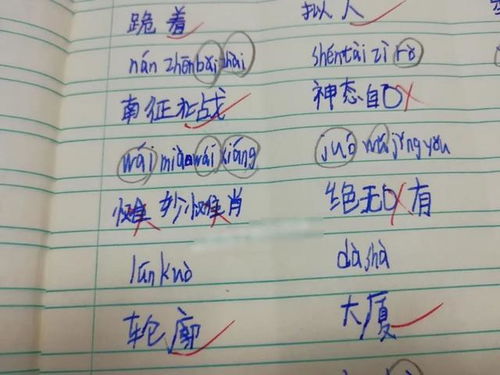 跪着 拟人
nán zhēnběi zhài shéntài zì rò
南征北战 神态自
wái miào wái xiāng juó wú jǐngyǒu
惟妙惟肖 绝无 有
lúnkuò dàshà
轮廓 大厦